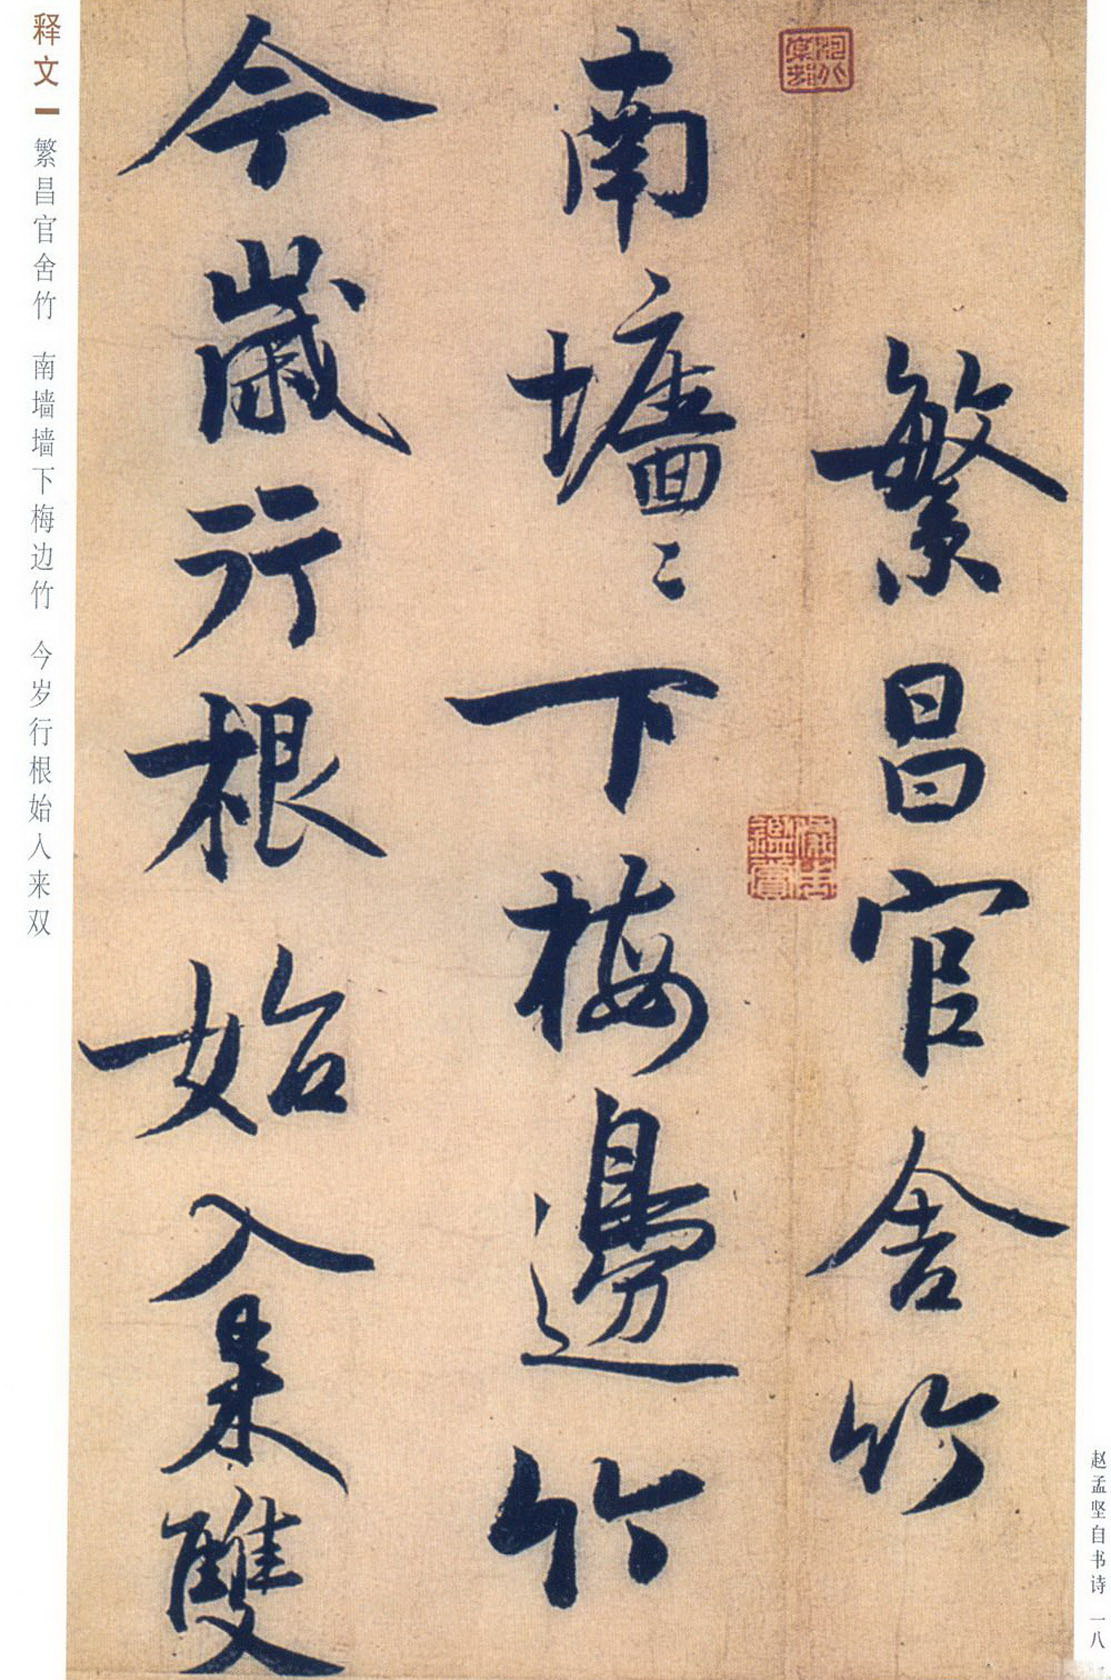 繁昌官舍竹
南墻〻下梅邊竹
今歲行根始入來雙
释文
繁昌官舍竹 南墙墙下梅边竹 今岁行根始入来双
赵孟坚自书诗 一八